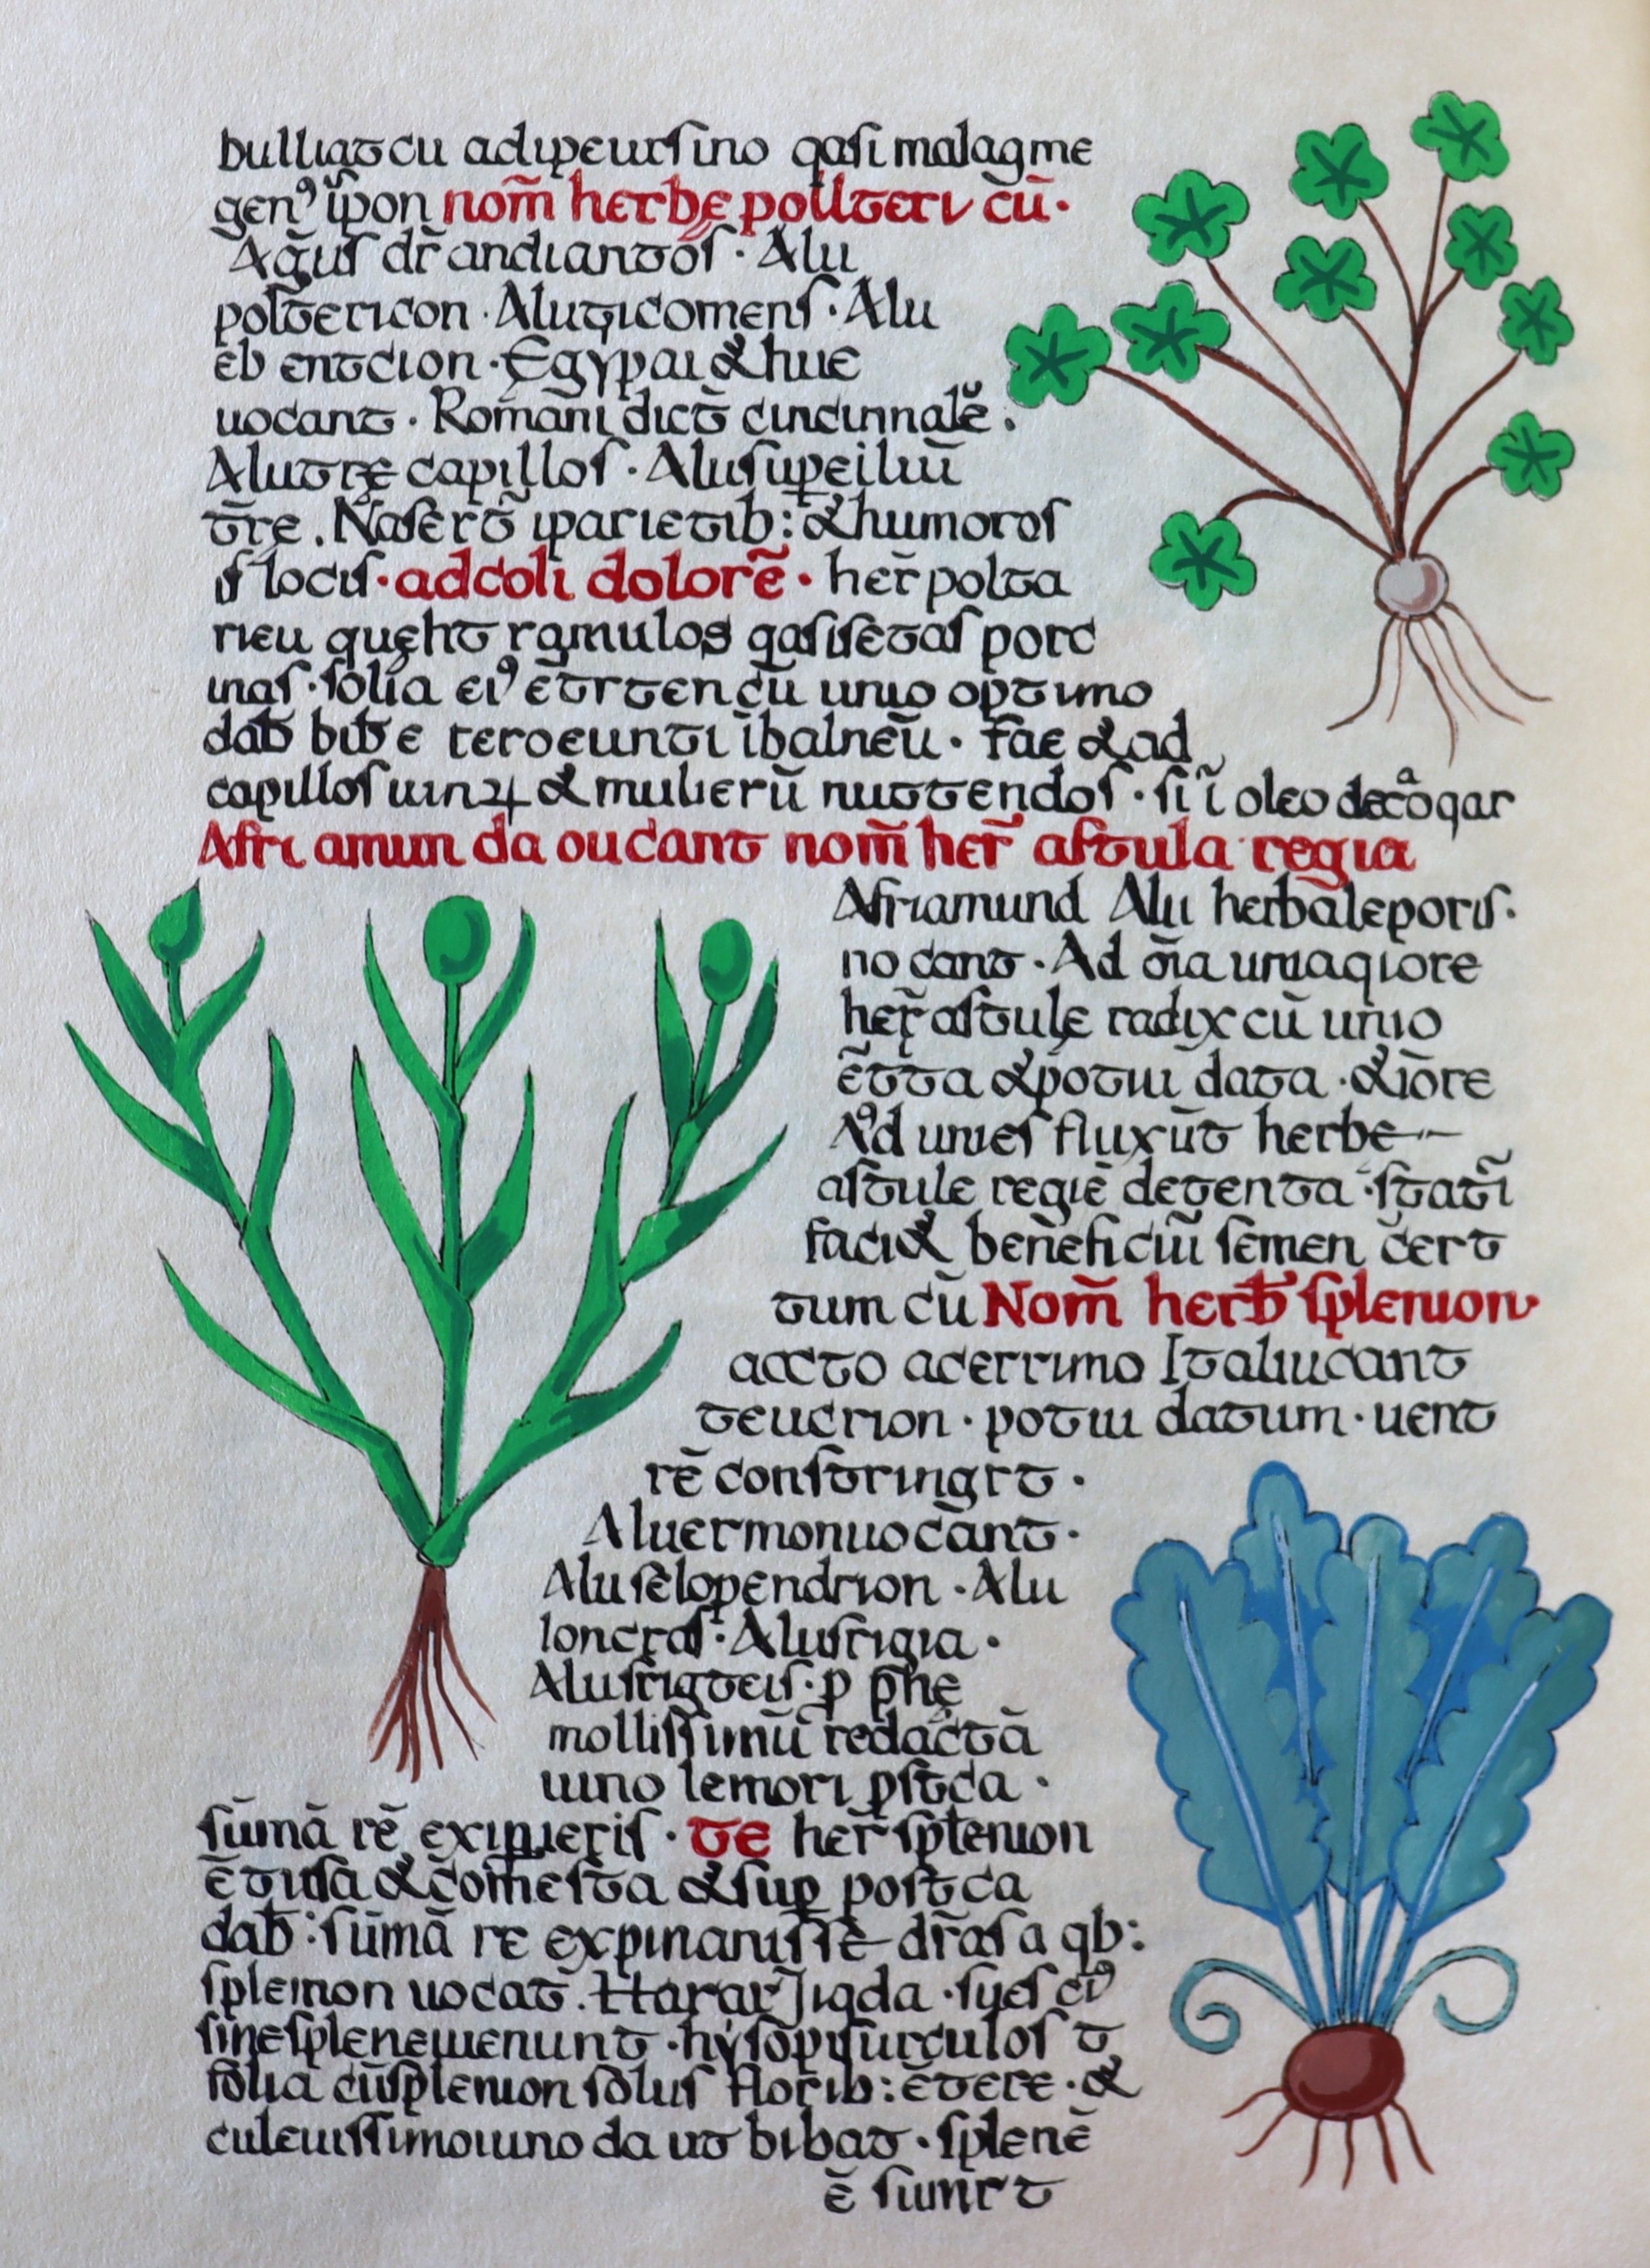 bulliat cu adipeursino qasi malagme
gen⁹ ip̄on nom̄ herbę pollterı cū·
Aḡus dr̄ andiantōs · Alii
poltericon · Aliiticomens · Alii
eb entcion · Egypai & hue
uocant · Romāni dict̄ cincinnalē .
Alii trę capillos · Alii supeiliū
tre . Nasēr̄t iparietib: & humoros
is locis · ad coli dolorē · her̄ polta
rieu quęht ramulos qasi setas porc
inas · folia ei⁹ ētrten cū uino optimo
dab̄ bib̄e teroeunti ībalneū · fae & ad
capillos uin & mulierū nuttendos · si ī oleo decoqar
Afri amun da oucant nom̄ her̄ astula regia
Afriamund Alii herbaleporis ·
no cant · Ad oīa uniaqiore
her̄ astulę radix cū uino
ētta & potui data · & iōre
Ad uries fluxūt herbe
astule regiē detenta · statī
faci& beneficiū semen cērt
tum cū Nom̄ herb̄ splenion
accto acerrimo Italiucant
teucrion · potui datum · uent
rē constringrt ·
Aliiermonuocānt ·
Alii sēlopendrion · Alii
loncras · Alii frigia ·
Alii frigteis · p p̄hę
mollissimū redactā
uino lemori p̄stca ·
sūmā rē exipieris · te her̄ splenion
ētusa & com̄esta & sup postca
dab̄ : sūmā re expinanisse dr̄asa qb:
splemon uocat̄ . Harar Jiqda · sues ci⁹
sinesplenewenunt · hysopisurculos t
folia cūsplenion solus florib: ētere · &
culeuissimouino da ut bibat · splenē
ē sumrt